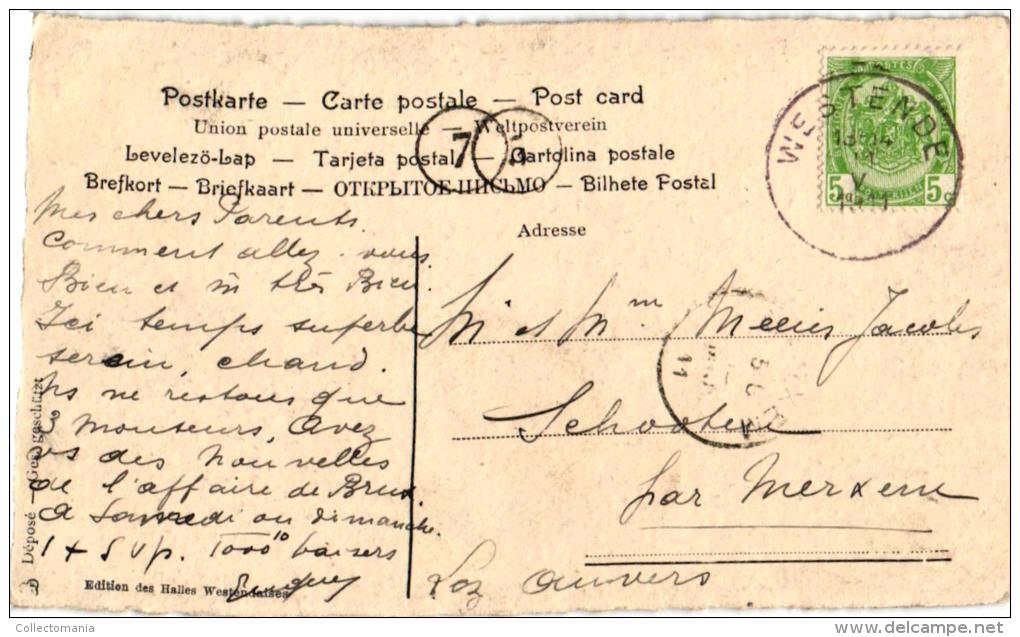 Postkarte — Carte postale — Post card
Union postale universelle — Weltpostverein
Levelezö-Lap — Tarjeta postal — Cartolina postale
Brefkort — Briefkaart — ОТКРЫТОЕ ПИСЬМО — Bilhete Postal
7
5 5
WESTENDE
13-14
11
V
1911
Adresse
Mes chers Parents.
Comment allez-vous
Bien et m très Bien.
Ici temps superbe
serein, chaud.
ns ne restons que
3 monteurs, Avez
vs des nouvelles
de l'affaire de Brux.
A Samedi ou dimanche.
1 + S v p. 1000 10 baisers
M et Mm Meeus Jacobs
Schooten
par Merxem
Lez Anvers
11
Déposé — Ges. geschützt
Edition des Halles Westendaises
Collectomania
http://www.delcampe.net